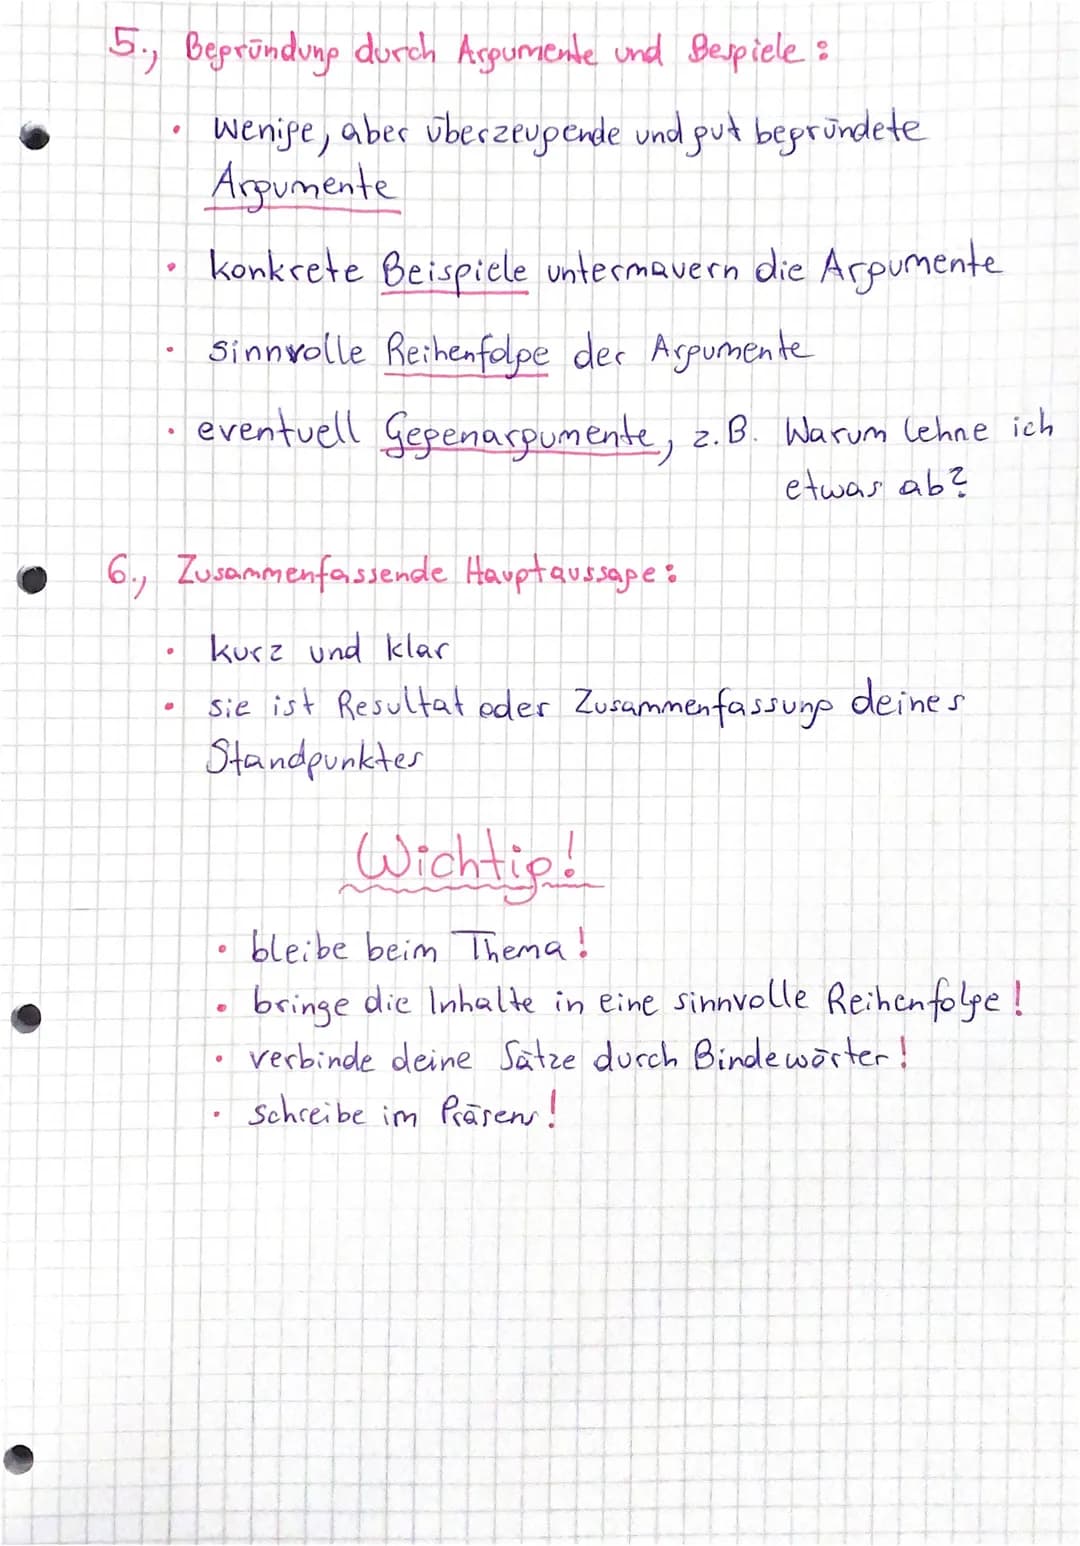 5., Begründung durch Argumente und Bespiele:
• wenige, aber überzeugende und gut begründete
Argumente
• konkrete Beispiele untermauern die Argumente
• sinnvolle Reihenfolge der Argumente
• eventuell Gegenargumente, z.B. Warum lehne ich
etwas ab?
6., Zusammenfassende Hauptaussage:
• kurz und klar
• sie ist Resultat oder Zusammenfassung deines
Standpunktes
Wichtig!
• bleibe beim Thema!
• bringe die Inhalte in eine sinnvolle Reihenfolge!
• verbinde deine Sätze durch Bindewörter!
• schreibe im Präsens!